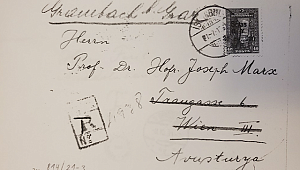 Grambach b. Graz
Herrn
Prof. Dr. Hofr. Joseph Marx
Traungasse 6
Wien III
Avusturya